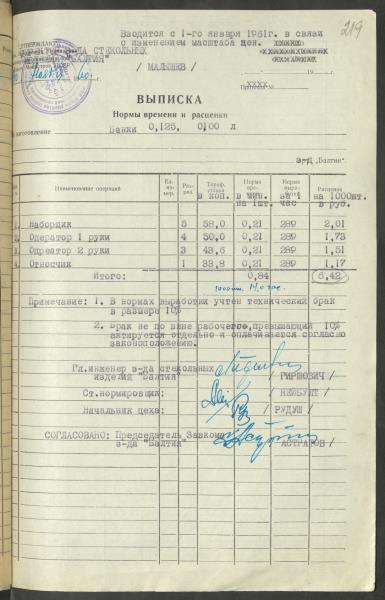 219
Вводится с 1-го января 1961г. в связи
с изменением масштаба цен.
УТВЕРЖДАЮ
ДА СТЕКОЛЬНЫХ
"БАЛТИЯ"
/ МАЛЫШЕВ /
19 г.
ВЫПИСКА
Нормы времени и расценки
изготовление Банки 0,125, 0,100 л
з-д „Балтия".
Наименование операций
Ед. измер.
Разряд
Тариф. ставка в коп.
Норма вре. в мин. на 1шт.
Норма выраб. за 1 час
Расценка на 1000шт. в руб.
1. Наборщик 5 58,0 0,21 289 2,01
2. Оператор 1 руки 4 50,0 0,21 289 1,73
3. Опреатор 2 руки 3 43,6 0,21 289 1,51
4. Относчик 1 33,8 0,21 289 1,17
Итого: 0,84 6,42
Примечание: 1. В нормах выработки учтен технический брак
в размере 10%
2. Брак не по вине рабочего, превышающий 10%
актируется отдельно и оплачивается согласно
законоположению.
Гл.инженер з-да стекольных
изделий "Балтия" / ГИРШОВИЧ /
Ст.нормировщик: / НЕЙБУЛТ /
Начальник цеха: / РУДУШ /
СОГЛАСОВАНО: Председатель Завкома
з-да "Балтия" / АСТРАТОВ /